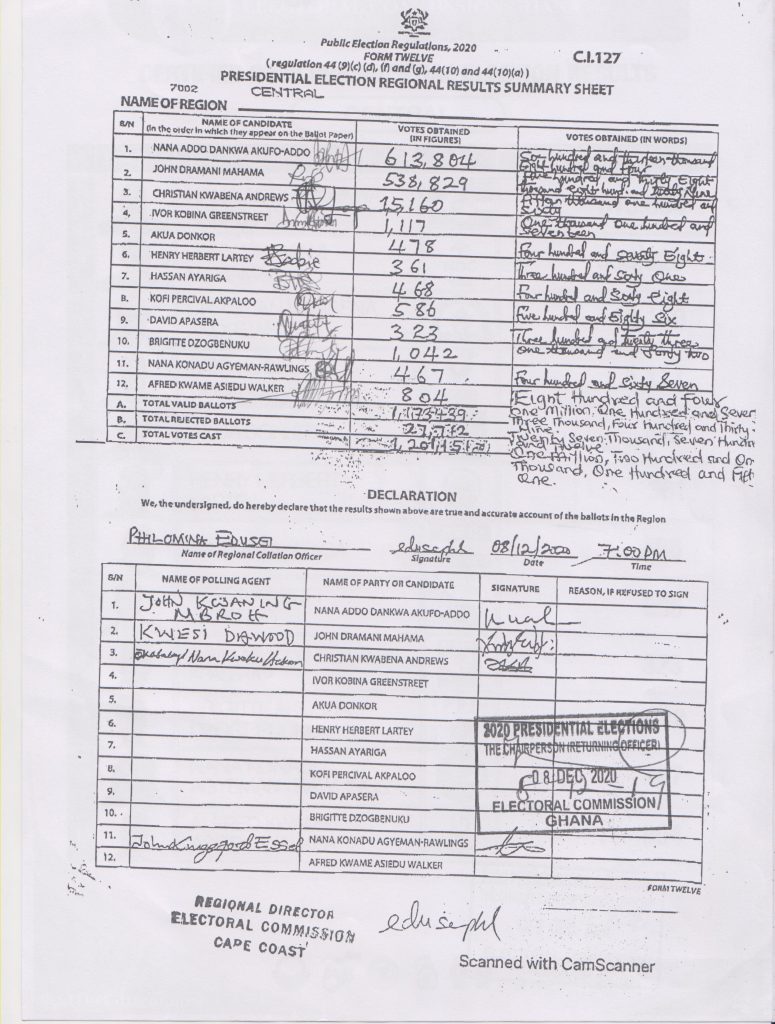 Public Election Regulations, 2020
FORM TWELVE
C.I.127
( regulation 44 (9)(c) (d), (f) and (g), 44(10) and 44(10)(a) )
PRESIDENTIAL ELECTION REGIONAL RESULTS SUMMARY SHEET
7002
NAME OF REGION CENTRAL
S/N NAME OF CANDIDATE (in the order in which they appear on the Ballot Paper) VOTES OBTAINED (IN FIGURES) VOTES OBTAINED (IN WORDS)
1. NANA ADDO DANKWA AKUFO-ADDO 613,804 Six hundred and thirteen thousand Eight hundred and four
2. JOHN DRAMANI MAHAMA 538,829 five hundred and thirty Eight thousand eight hund and twenty Nine
3. CHRISTIAN KWABENA ANDREWS 15,160 fifteen thousand one hundred and sixty
4. IVOR KOBINA GREENSTREET 1,117 One thousand one hundred and seventeen
5. AKUA DONKOR 478 Four hundred and seventy Eight
6. HENRY HERBERT LARTEY 361 Three hundred and Sixty One
7. HASSAN AYARIGA 468 Four hundred and Sixty Eight
8. KOFI PERCIVAL AKPALOO 586 Five hundred and Eighty Six
9. DAVID APASERA 323 Three hundred and twenty three
10. BRIGITTE DZOGBENUKU 1,042 One thousand and forty two
11. NANA KONADU AGYEMAN-RAWLINGS 467 Four hundred and Sixty Seven
12. AFRED KWAME ASIEDU WALKER 804 Eight Hundred and four
A. TOTAL VALID BALLOTS 1,173,439 One Million, One Hundred and Seven Three Thousand, Four Hundred and Thirty-Nine
B. TOTAL REJECTED BALLOTS 27,712 Twenty Seven Thousand, Seven Hundr and Twelve
C. TOTAL VOTES CAST One Million, Two Hundred and On Thousand, One Hundred and Fift One.
DECLARATION
We, the undersigned, do hereby declare that the results shown above are true and accurate account of the ballots in the Region
PHILOMINA EDUSEI edusephl 08/12/2020 7:00PM
Name of Regional Collation Officer Signature Date Time
S/N NAME OF POLLING AGENT NAME OF PARTY OR CANDIDATE SIGNATURE REASON, IF REFUSED TO SIGN
1. JOHN MBROH NANA ADDO DANKWA AKUFO-ADDO
2. KWESI DAWOOD JOHN DRAMANI MAHAMA
3. Nana Kwaku CHRISTIAN KWABENA ANDREWS
4. IVOR KOBINA GREENSTREET
5. AKUA DONKOR
6. HENRY HERBERT LARTEY
7. HASSAN AYARIGA
8. KOFI PERCIVAL AKPALOO
9. DAVID APASERA
10. BRIGITTE DZOGBENUKU
11. John Essel NANA KONADU AGYEMAN-RAWLINGS
12. AFRED KWAME ASIEDU WALKER
2020 PRESIDENTIAL ELECTIONS
THE CHAIRPERSON (RETURNING OFFICER)
08 DEC 2020
ELECTORAL COMMISSION
GHANA
FORM TWELVE
REGIONAL DIRECTOR
ELECTORAL COMMISSION
CAPE COAST
edusephl
Scanned with CamScanner